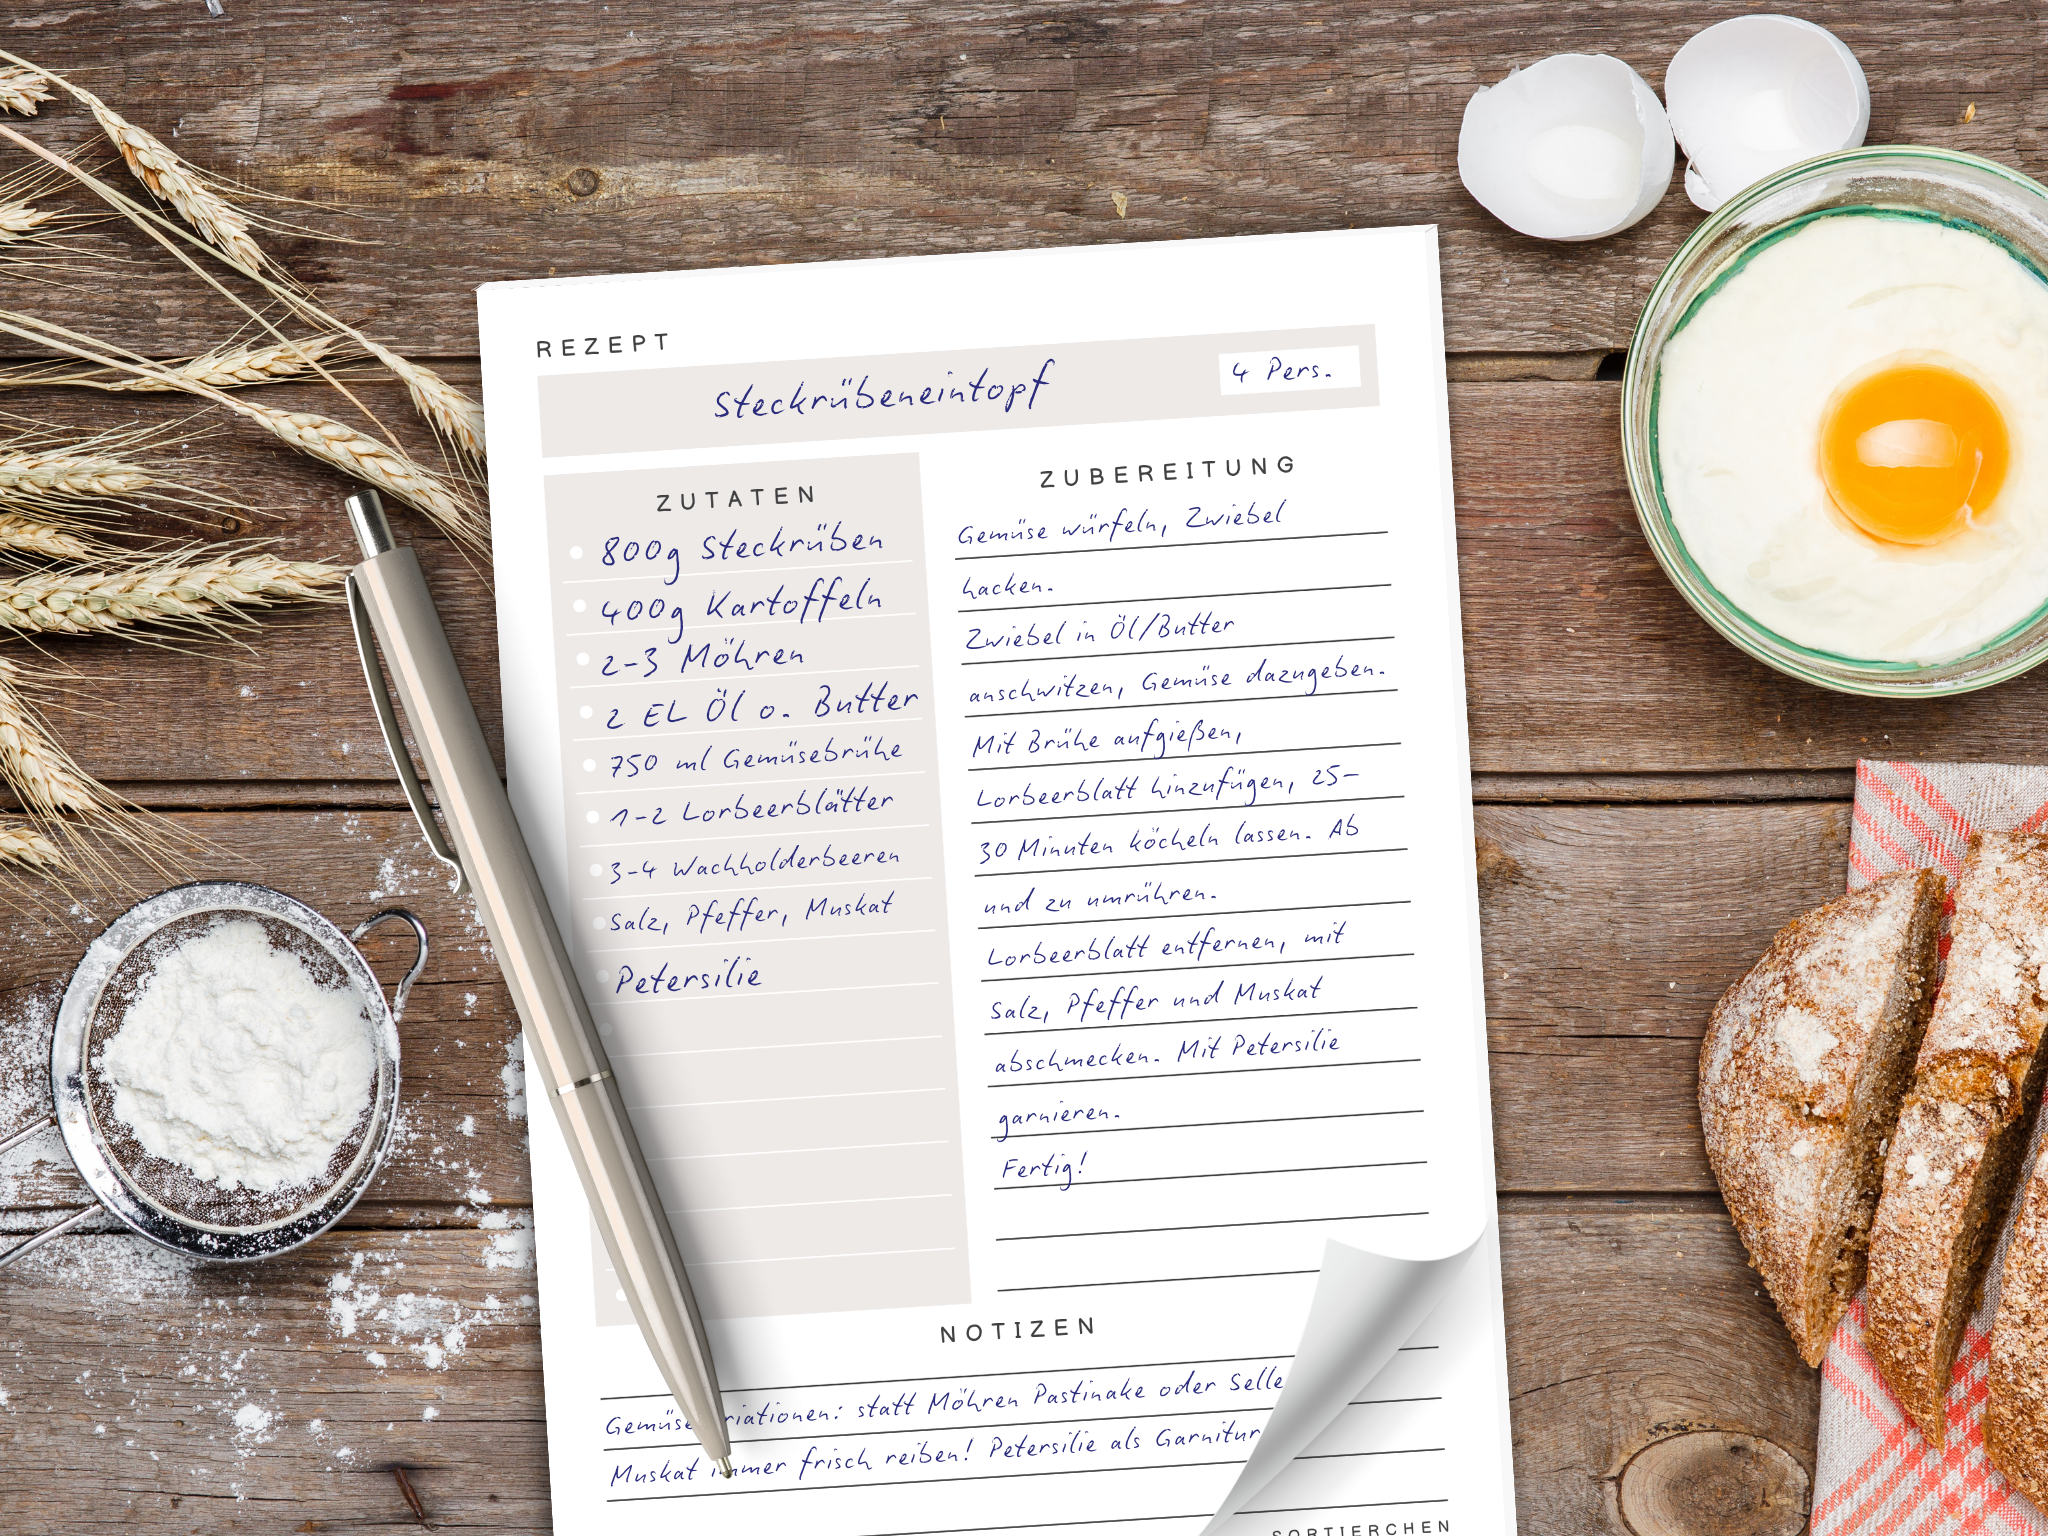 REZEPT
Steckrübeneintopf
4 Pers.
ZUTATEN
800g Steckrüben
400g Kartoffeln
2-3 Möhren
2 EL Öl o. Butter
750 ml Gemüsebrühe
1-2 Lorbeerblätter
3-4 Wachholderbeeren
Salz, Pfeffer, Muskat
Petersilie
ZUBEREITUNG
Gemüse würfeln, Zwiebel
hacken.
Zwiebel in Öl/Butter
anschwitzen, Gemüse dazugeben.
Mit Brühe aufgießen,
Lorbeerblatt hinzufügen, 25-
30 Minuten köcheln lassen. Ab
und zu umrühren.
Lorbeerblatt entfernen, mit
Salz, Pfeffer und Muskat
abschmecken. Mit Petersilie
garnieren.
Fertig!
NOTIZEN
statt Möhren Pastinake oder
Muskat immer frisch reiben! Petersilie als Garnitur
SORTIERCHEN